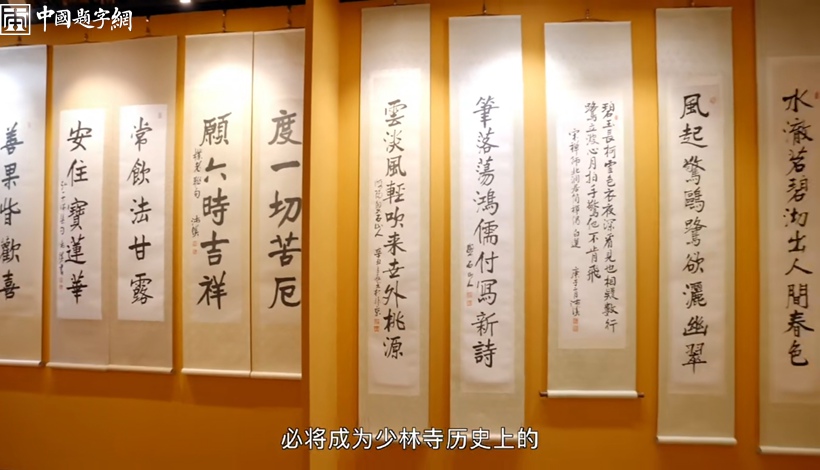 中國題字網
水澈茗碧沏出人間春色
風起驚鷗鷺欲灑幽翠
碧玉長柯雪色衣夜深看見也相疑數行
鷺立波心月拍手驚他不肯飛
筆落蕩鴻儒付寫新詩
雲淡風輕吹来世外桃源
度一切苦厄
願六時吉祥
常飲法甘露
安住寶蓮華
善果皆歡喜
必将成为少林寺历史上的